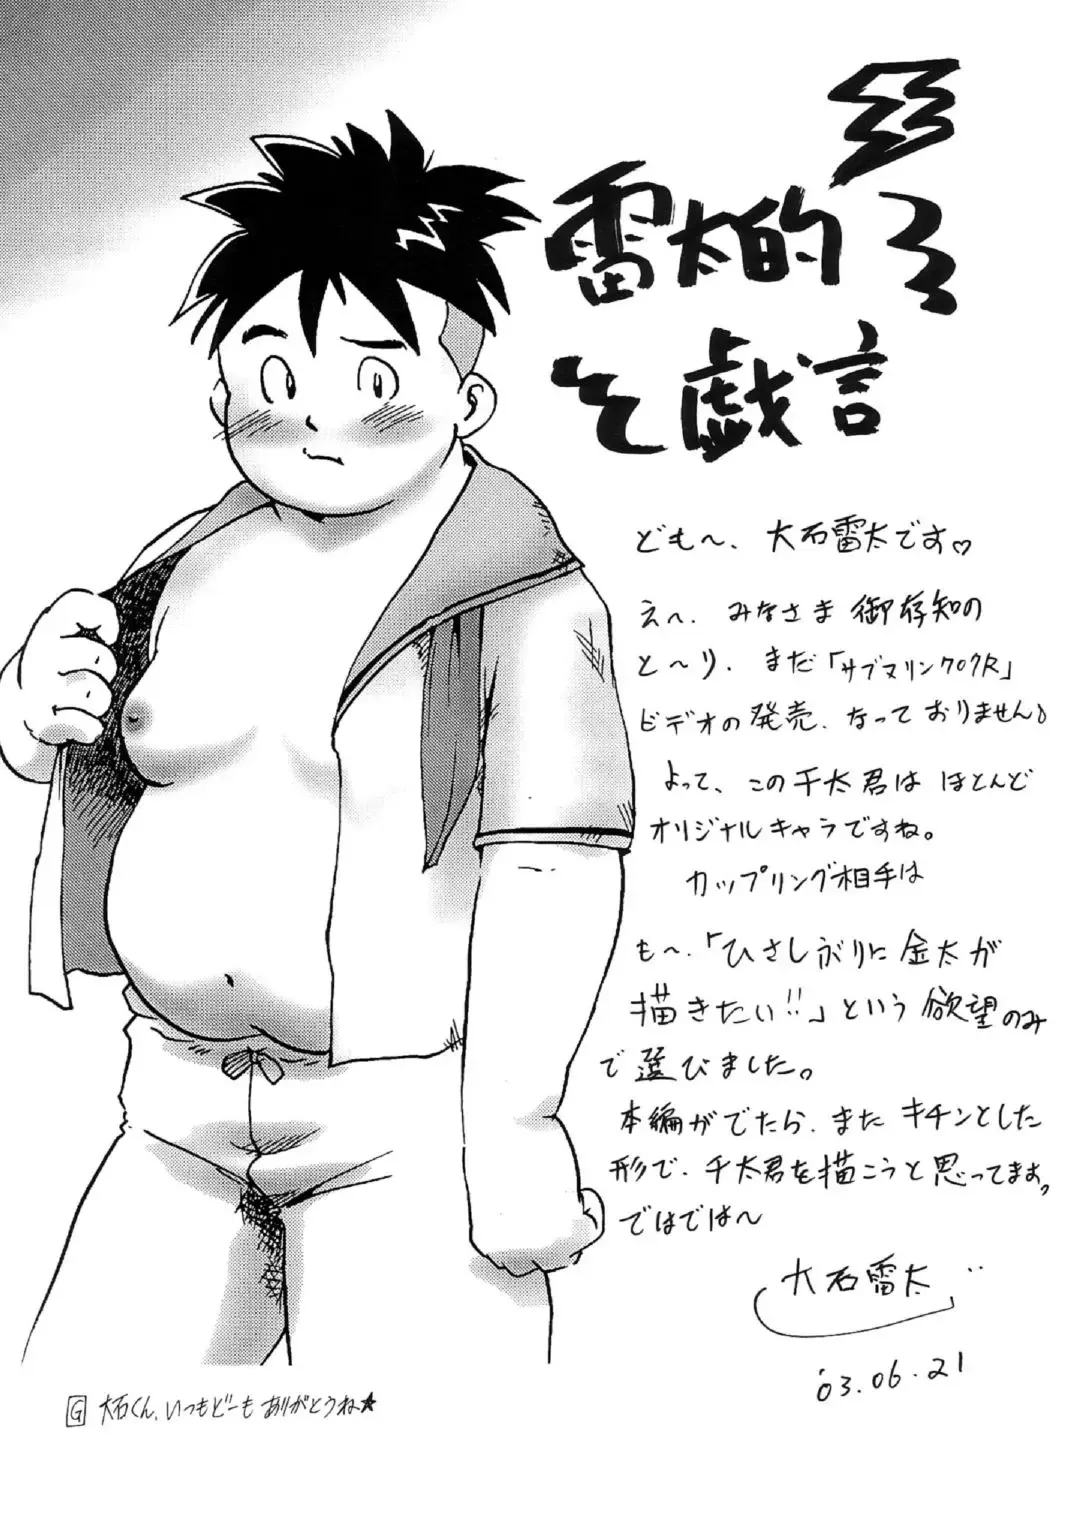 雷太的
戯言
ども〜、大石雷太です♡
え〜、みなさま御存知の
と〜り、まだ「サブマリンクロクR」
ビデオの発売、なっておりません♪
よって、この千太君はほとんど
オリジナルキャラですね。
カップリング相手は
も〜、「ひさしぶりに金太が
描きたい!!」という欲望のみ
で選びました。
本編がでたら、またキチンとした
形で、千太君を描こうと思ってます。
ではでは〜
大石雷太
'03.06.21
G 大石くん、いつもどーもありがとうね★